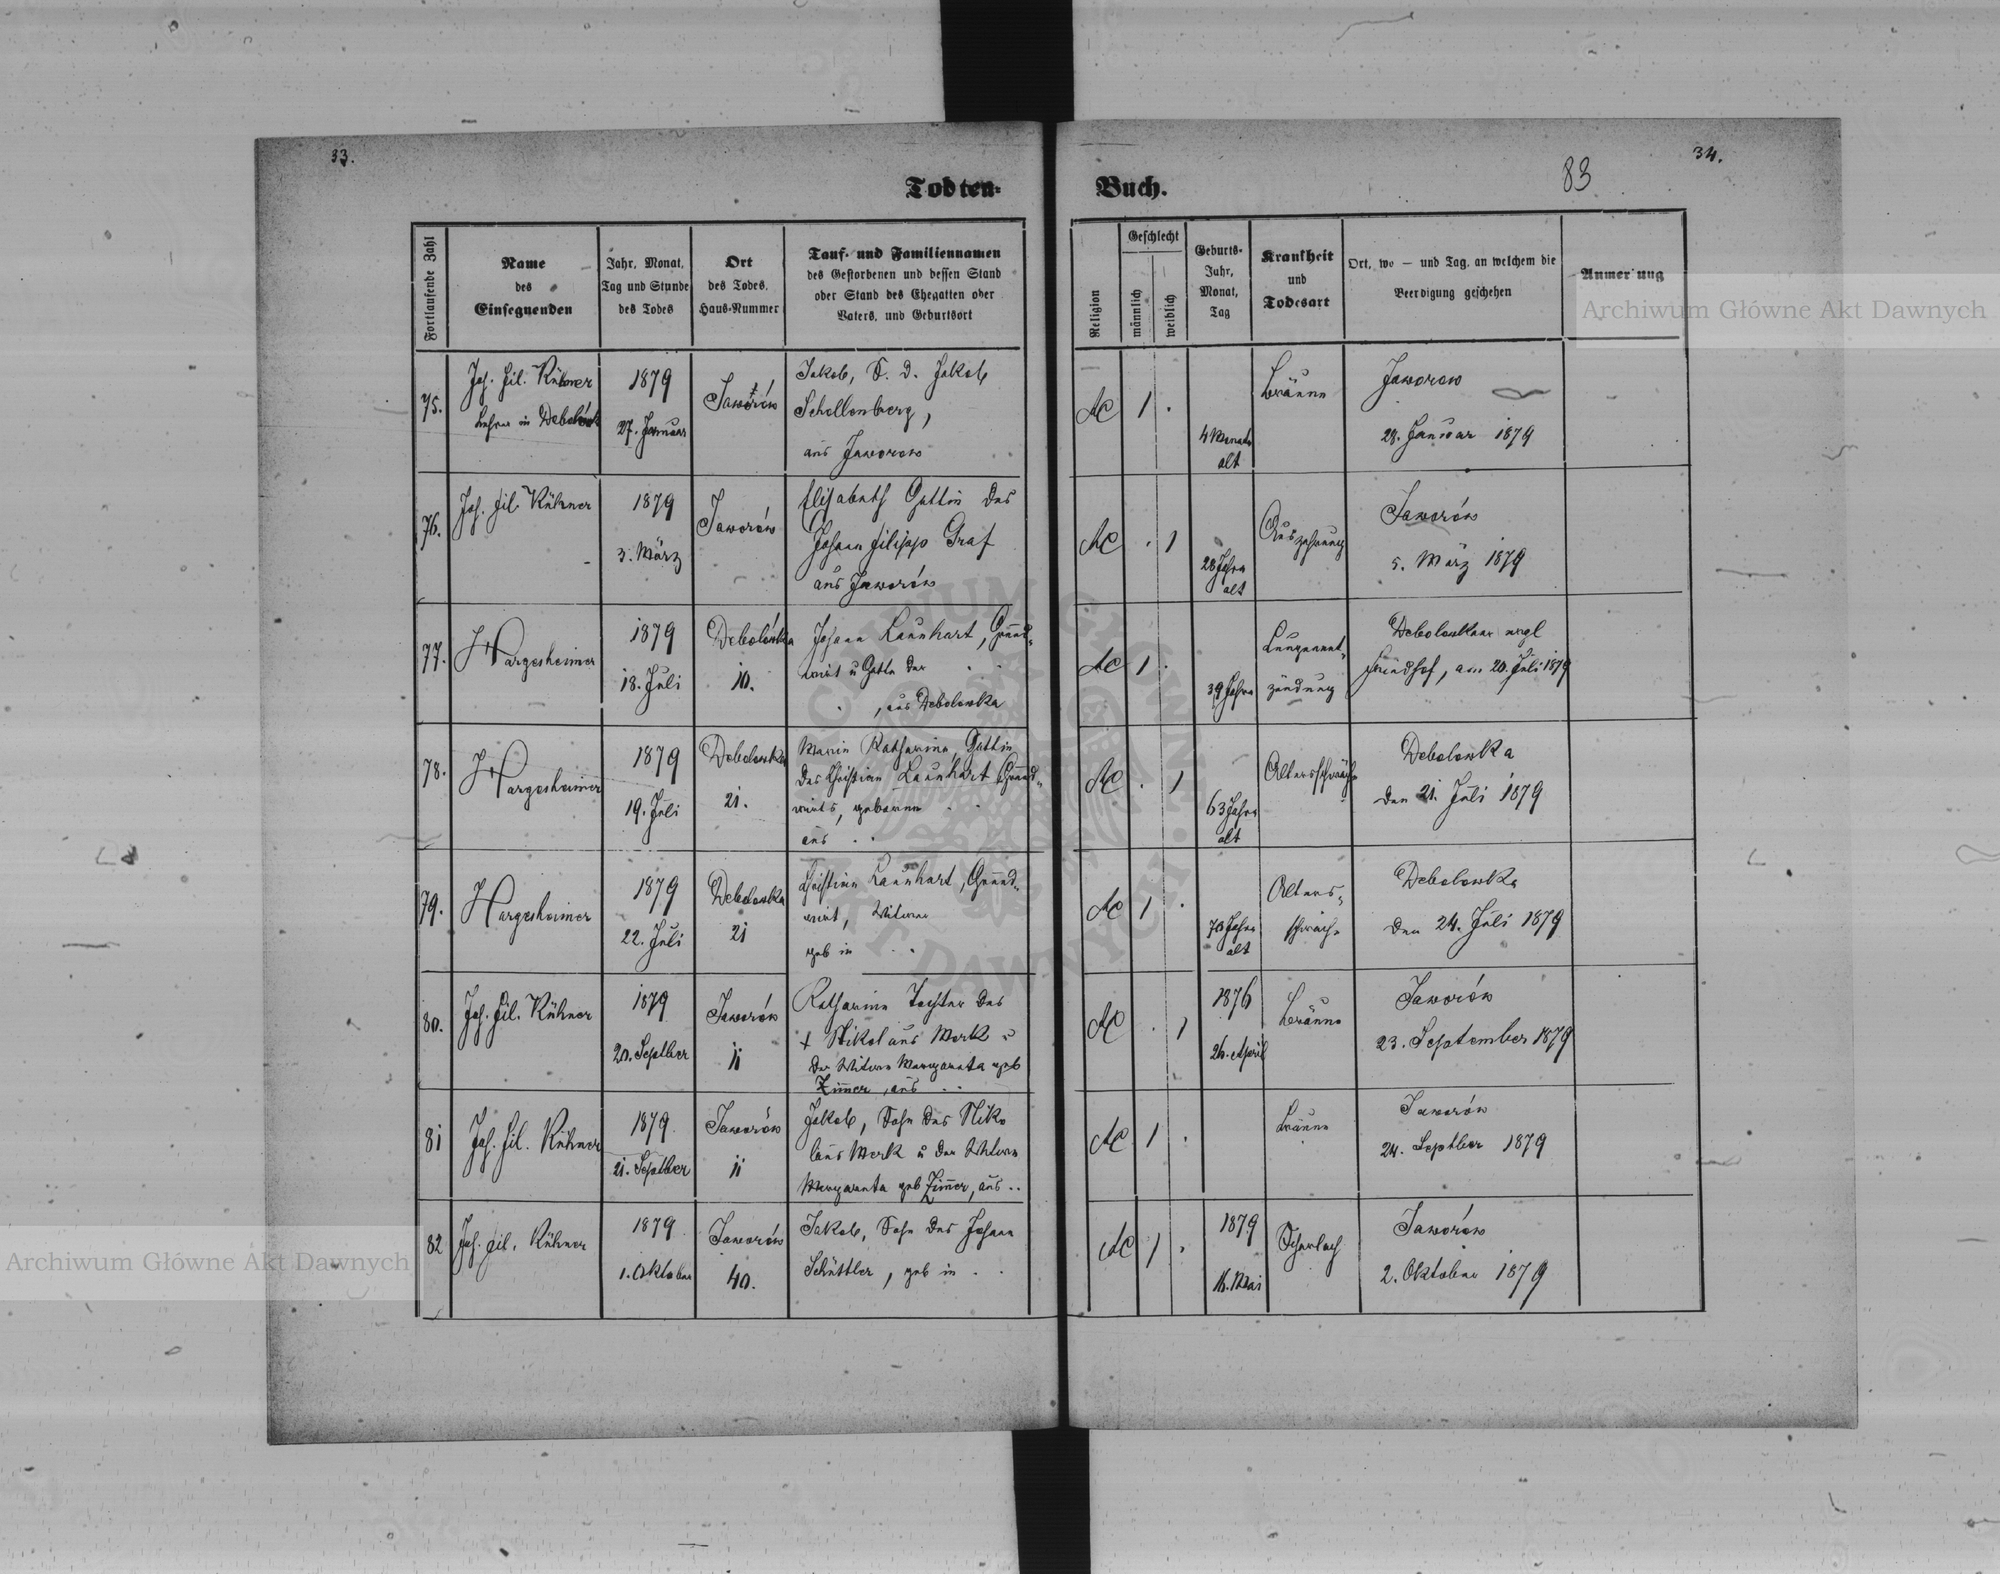 33.
34.
83
Todten-
Buch.
Fortlaufende Zahl
Name
des
Einsegnenden
Jahr, Monat,
Tag und Stunde
des Todes
Ort
des Todes,
Haus-Nummer
Tauf- und Familiennamen
des Gestorbenen und dessen Stand
oder Stand des Ehegatten oder
Vaters, und Geburtsort
Religion
Geschlecht
männlich
weiblich
Geburts-
Jahr,
Monat,
Tag
Krankheit
und
Todesart
Ort, wo — und Tag, an welchem die
Beerdigung geschehen
Anmerkung
75.
Joh. Fil. Kühner
Lehrer in
1879
27. Januar
Jaworów
Jakob, S. d. Jakob
Schollenberg,
aus Jaworow
AC
1
4 Monate
alt
Bräune
Jaworow
28. Januar 1879
76.
Joh. Fil. Kühner
1879
3. März
Jaworów
Elisabeth Gattin des
Johann Filipp Graf
aus Jaworów
AC
1
28 Jahre
alt
Auszehrung
Jaworów
5. März 1879
77.
Hargesheimer
1879
18. Juli
Debolówka
10.
Johann Launhart, Grund-
wirt u Gatte der
, aus Debolowka
AC
1
39 Jahre
Lungenent-
zündung
Debolowkaer evgl
Friedhof, am 20. Juli 1879
78.
Hargesheimer
1879
19. Juli
Debolowka
21.
Maria Katharina, Gattin
des Christian Launhart Grund-
wirts, geborene
aus
AC
1
63 Jahre
alt
Altersschwäche
Debolowka
den 21. Juli 1879
79.
Hargesheimer
1879
22. Juli
Debolowka
21
Christian Launhart, Grund-
wirt, Witwer
geb in
AC
1
Jahre
alt
Alters-
schwäche
Debolowka
den 24. Juli 1879
80.
Joh. Fil. Kühner
1879
20. Septber
Jaworów
11
Katharina Tochter des
+ Nikolaus Merk u
der Witwe Margareta geb
Zimmer, aus
AC
1
1876
26. April
Bräune
Jaworów
23. September 1879
81
Joh. Fil. Kühner
1879
21. Septber
Jaworów
11
Jakob, Sohn des Niko
laus Merk u der Witwe
Margareta geb Zimmer, aus
AC
1
Bräune
Jaworów
24. Septber 1879
82
Joh. Fil. Kühner
1879
1. Oktober
Jaworów
40.
Jakob, Sohn des Johann
Schüttler, geb in
AC
1
1879
16. Mai
Scharlach
Jaworów
2. Oktober 1879
Archiwum Główne Akt Dawnych
Archiwum Główne Akt Dawnych
ARCHIWUM GŁÓWNE AKT DAWNYCH